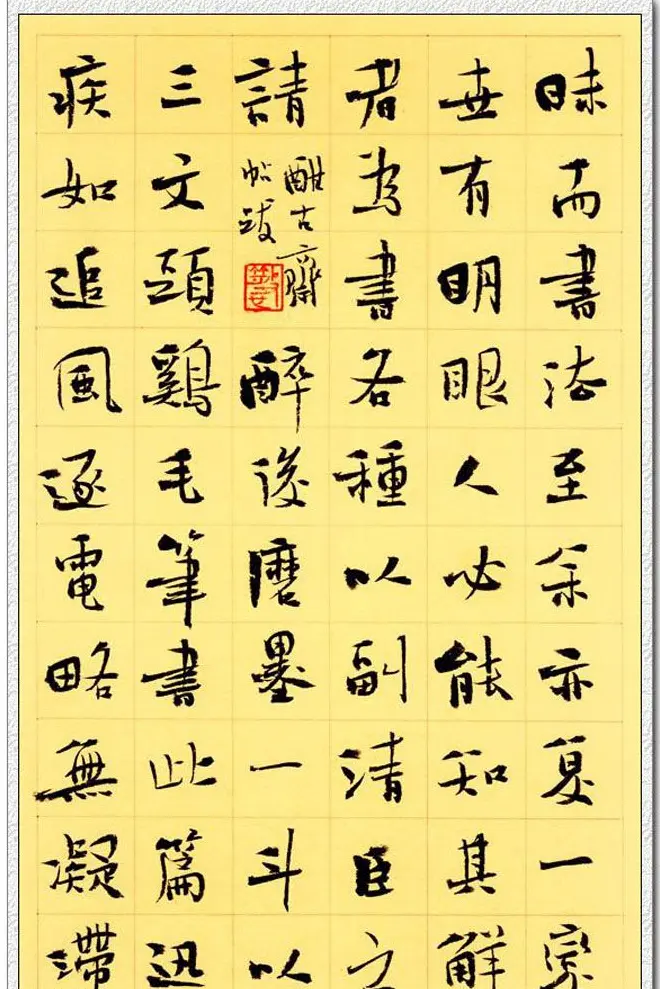 昧而書法至余亦复一
世有明眼人必能知其解
者為書各種以副清臣之
請
酣古齋
帖跋
醉後磨墨一斗以
三文頭鷄毛筆書此篇迅
疾如追風逐電略無凝滯